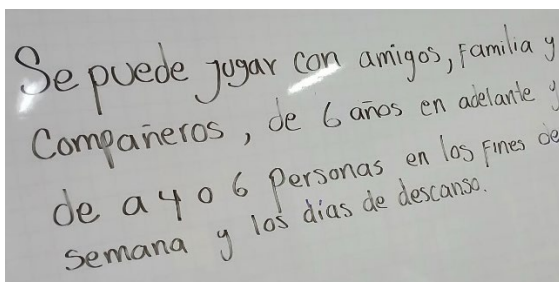 Se puede jugar con amigos, Familia y
Compañeros, de 6 años en adelante y
de a 4 o 6 Personas en los Fines de
Semana y los días de descanso.